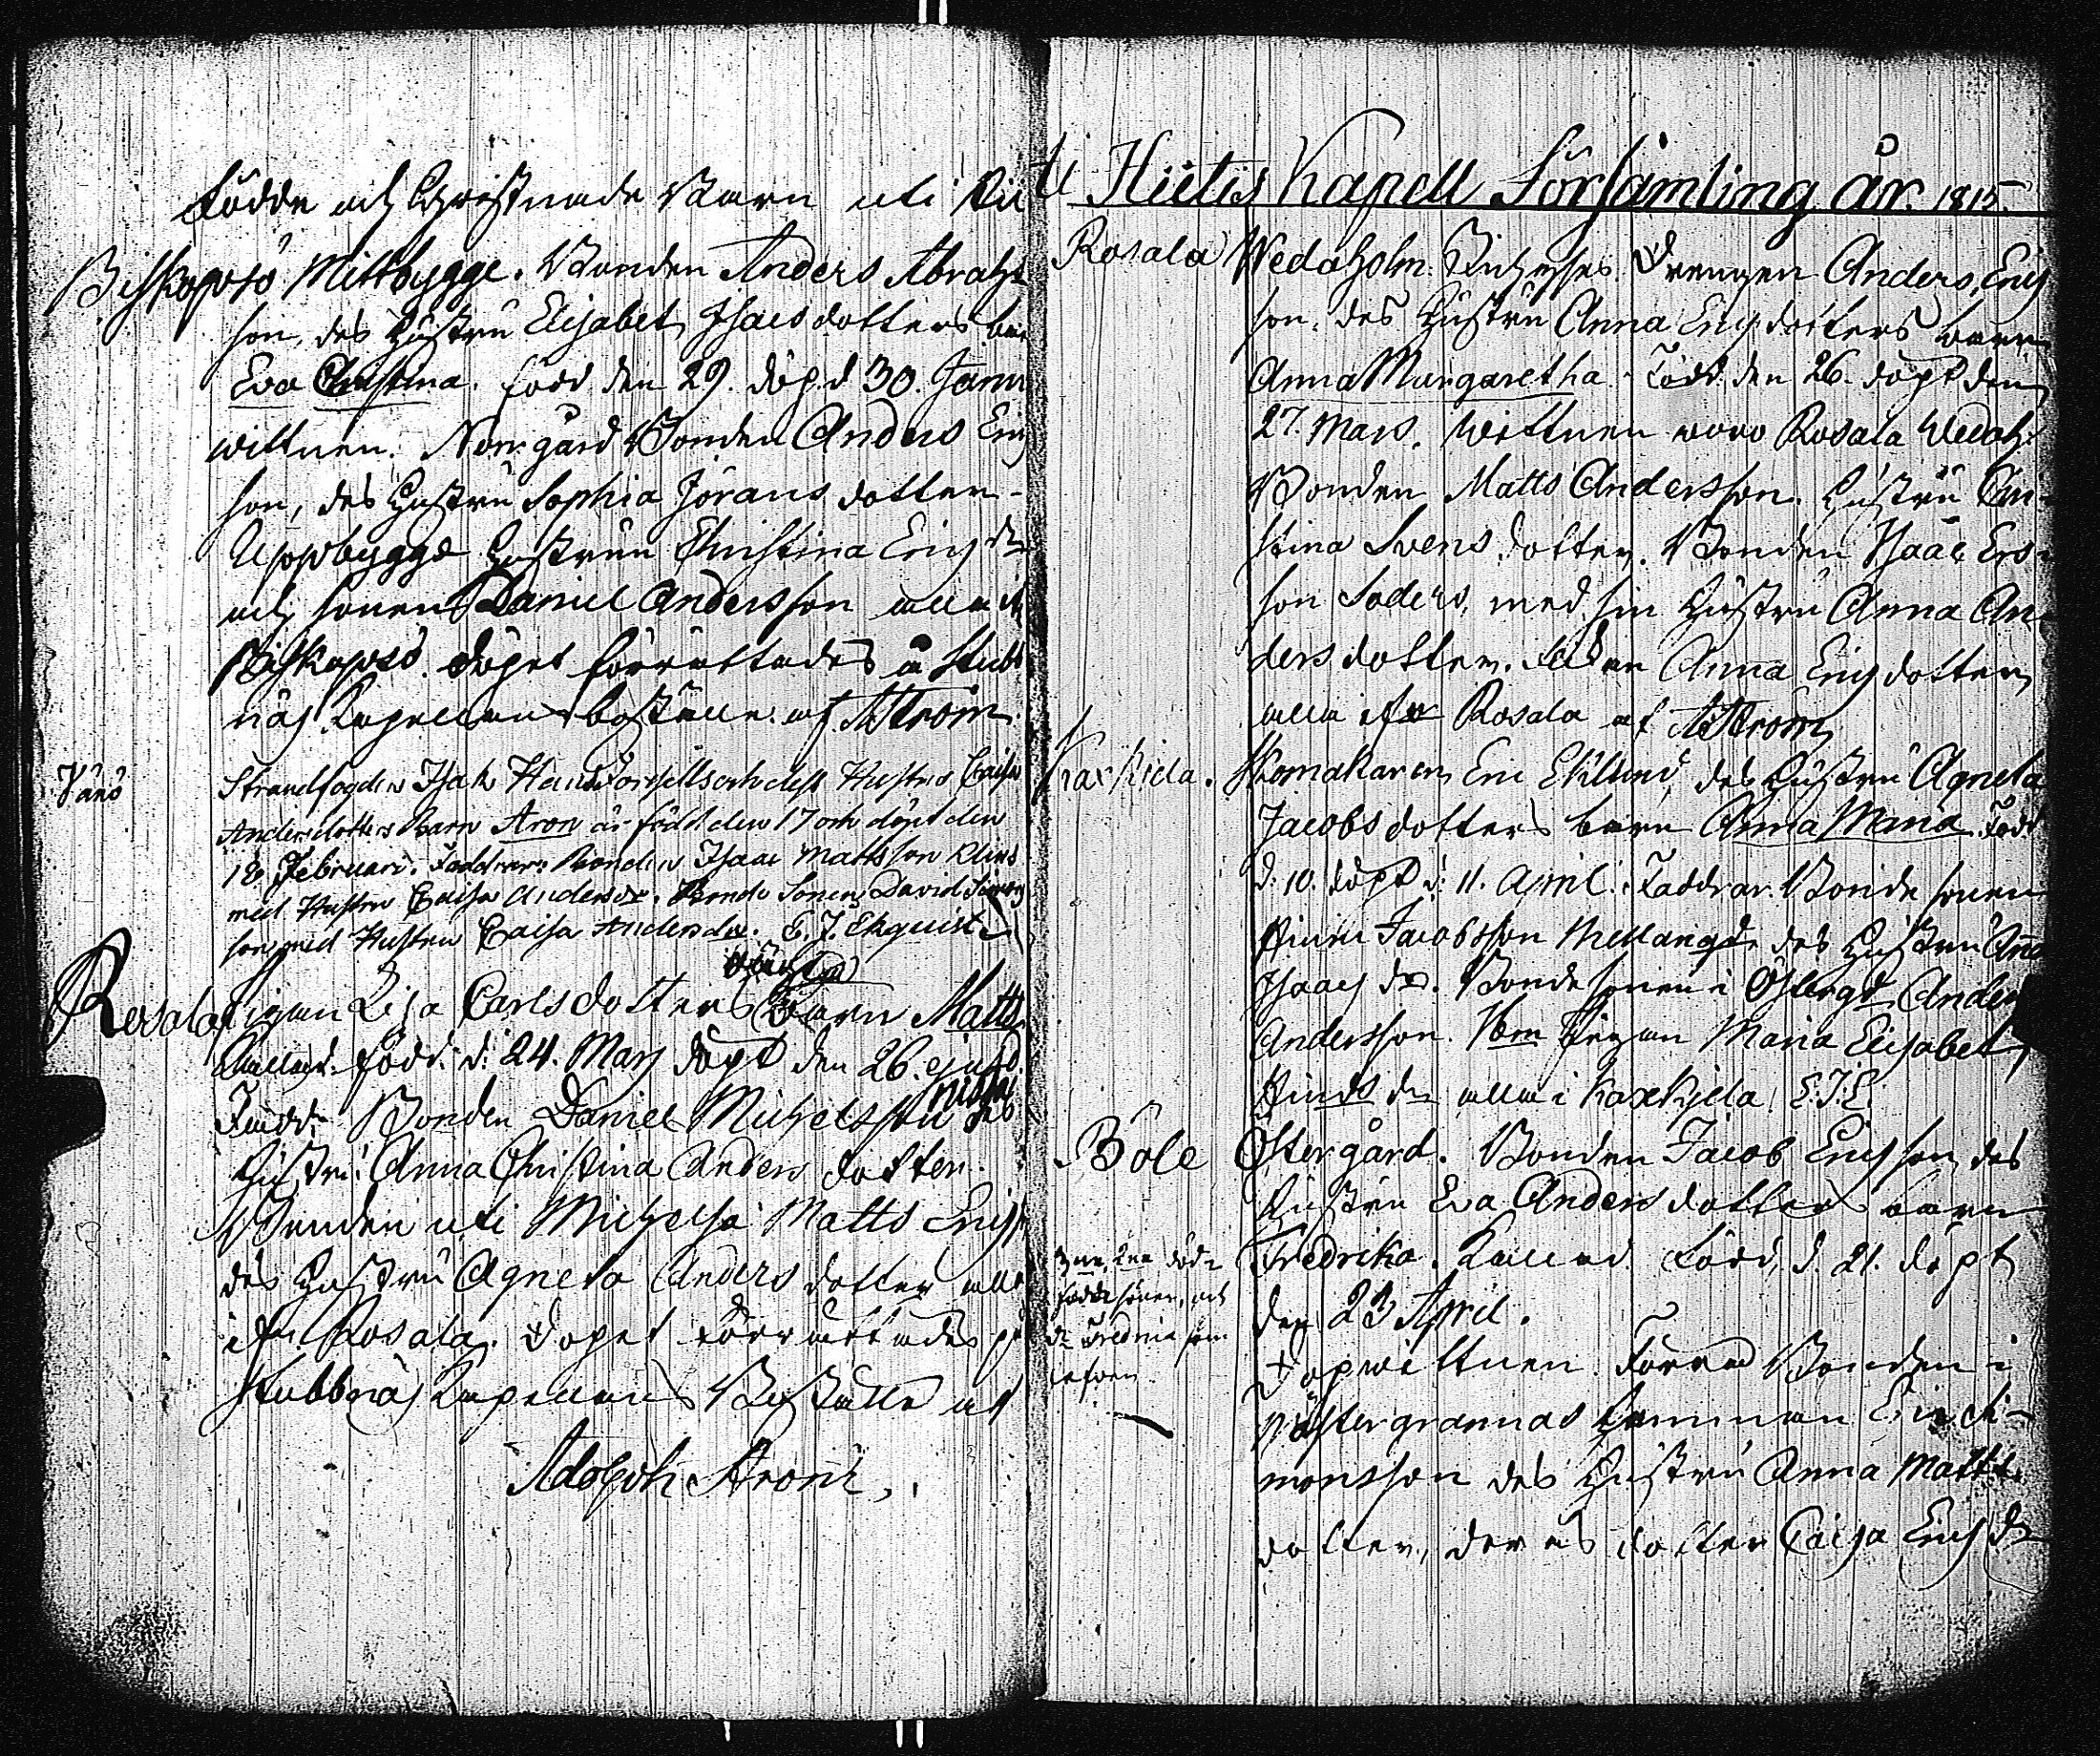 Födde och Christnade Barn uti
Biskopsö Mittbygge. Bonden Anders Abrahs
son, des Hustru Elisabet Isacs dotters barn
Eva Christina. född den 29. döpd 30. Janu
wittnen. Norrgård Bonden Anders Erics
son, des Hustru Sophia Jörans dotter-
Uppbygge Hustrun Christina Erics dr
och sonen Daniel Andersson alla ifr
Biskopsö. döpet förrättades å Stubb
näs Capellans boställe af AStröm.
Vänö
Strandfogden Isak och dess Hustrus Caisa
Andersdotters Barn Aron är född den 17 och döpt den
18 Februari. Faddrar: Bonden Isaac Mattsson
med Hustru Caisa Andersdr. Bonde Sonen David Simons
son med Hustru Caisa Andersdr. E. J. Ekquist
oäckta
Rosala Pigan Lisa Carlsdotters Barn Matts
kallad. född: d: 24. Mars döpt den 26. ejusd.
Fadd: Bonden Daniel Michelsson des
Hustru Anna Christina Anders dotter.
Bonden uti Michelsa Matts Erics
des Hustru Agneta Anders dotter alla
ifr. Rosala. Döpet förrättades på
Stubbnäs Capellans Boställe af
Adolph Ström.
ti Hiitis Kapell Församling år. 1815.
Rosala Wedaholm. Drengen Anders Erics
son. des Hustru Anna Ericsdotters barn
Anna Margaretha. Född den 26. döpt den
27. Mars. wittnen woro Rosala Wedah.
Bonden Matts Andersson. Hustru Chri-
stina Svens dotter. Bonden Isaac Ers-
son Söders, med sin Hustru Anna An-
ders dotter. Anna Erics dotter,
alla ifr Rosala af AStröm
Kaxkiela. Skomakaren Eric Eklund, des Hustru Agneta
Jacobs dotters barn Anna Maria. Född
d: 10. döpt d: 11. April. Faddrar. Bonde sonen
Jacobsson Mellangd. des Hustru Anna
Isaacs dr. Bondesonen i Östergd Anders
Andersson. Pigan Maria Elisabet
dr alla i Kaxkjela. E.J.E.
Böle Östergård. Bonden Jacob Ericsson, des
Hustru Eva Anders dotters barn
Fredrika. Kallad. Född, d. 21. döpt
den 23 April.
dopwittnen. Bonden i
Wästergrannas hemman Eric Si-
monsson des Hustru Anna Matts
dotter, deras dotter Caisa Erics dr